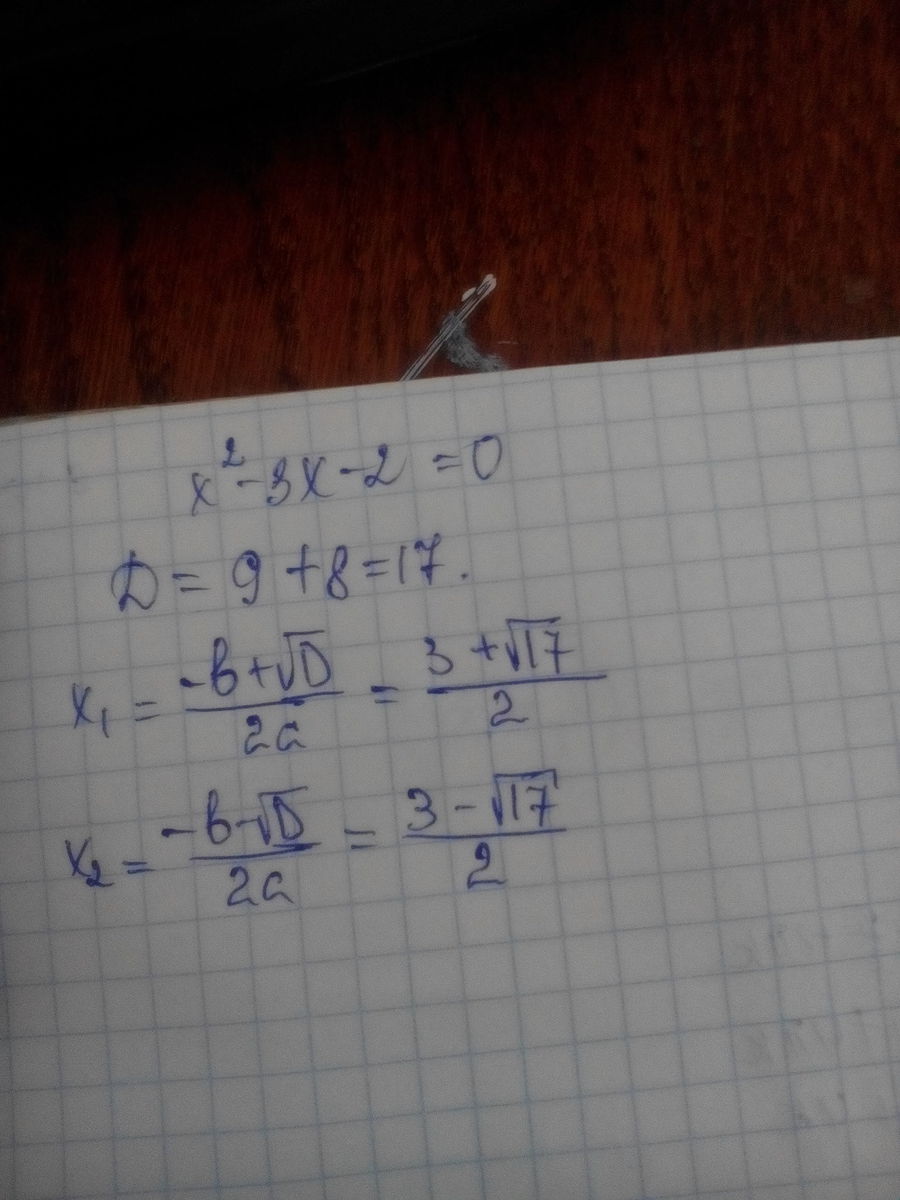 x² - 3x - 2 = 0
D = 9 + 8 = 17.
x₁ = (-b + √D) / 2a = (3 + √17) / 2
x₂ = (-b - √D) / 2a = (3 - √17) / 2